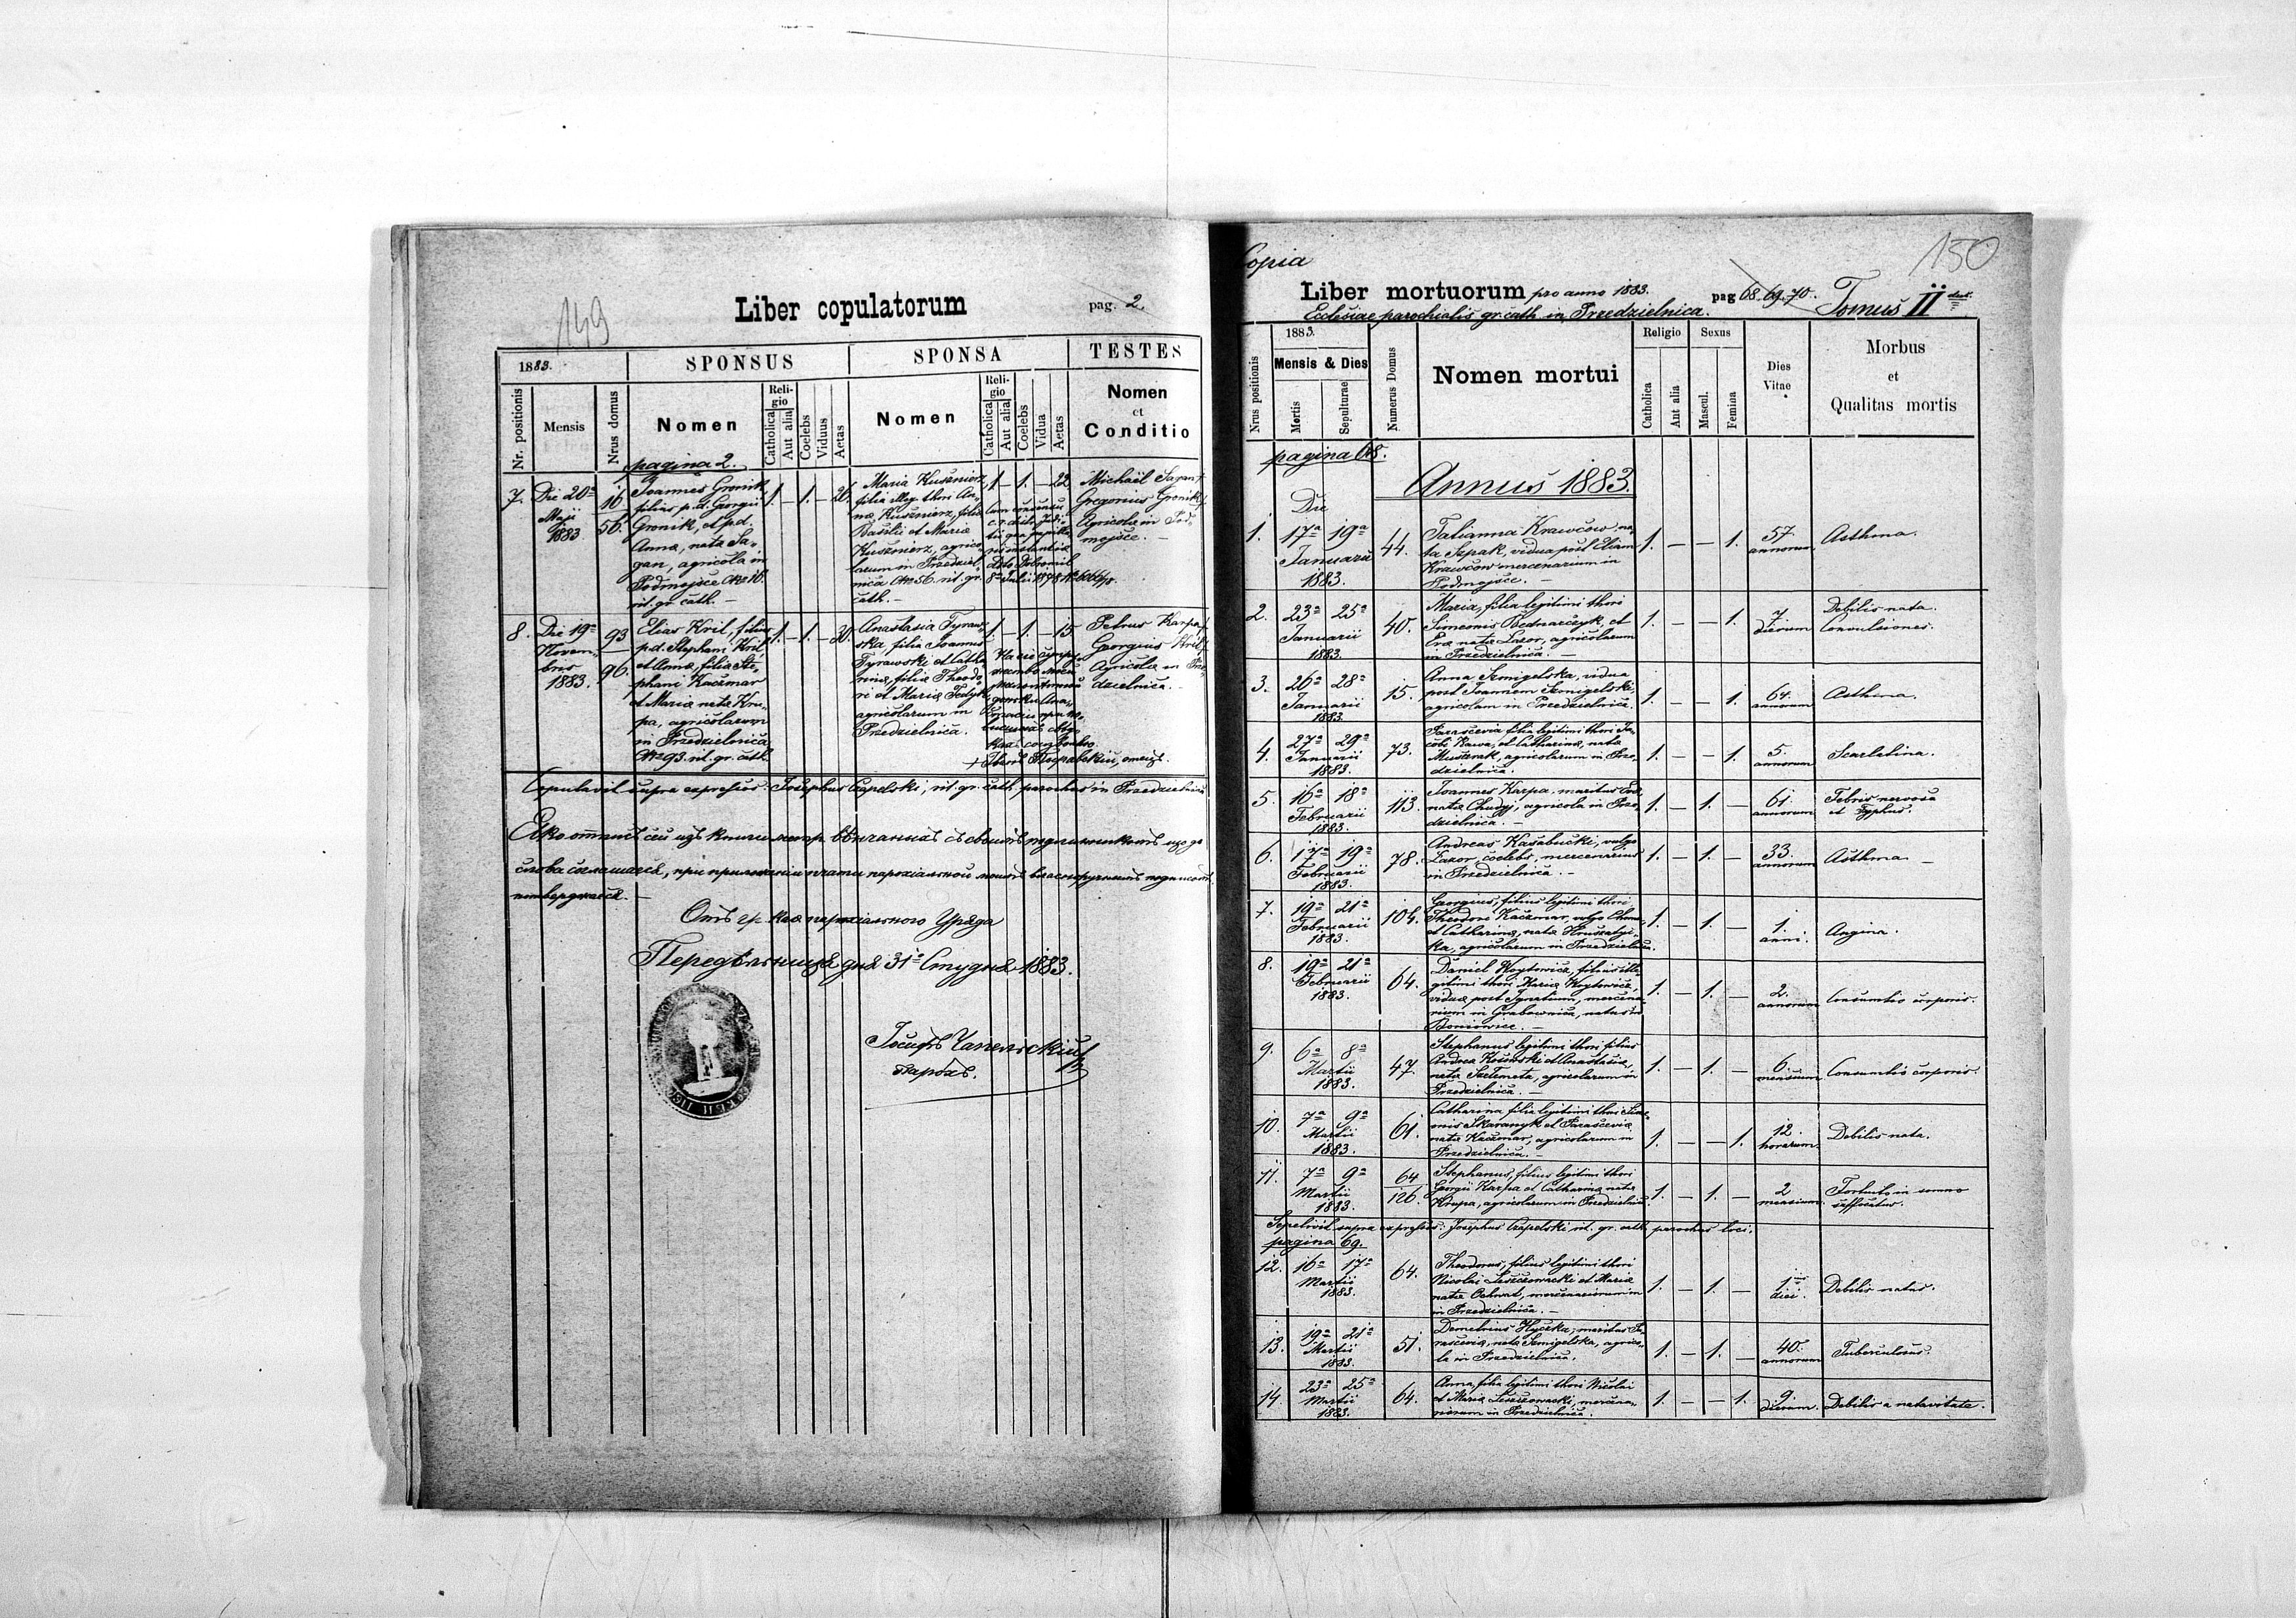 149
Liber copulatorum
pag. 2.
1883.
SPONSUS
SPONSA
TESTES
Nr. positionis
Mensis
Nrus domus
Nomen
Religio
Catholica
Aut alia
Coelebs
Viduus
Aetas
Nomen
Religio
Catholica
Aut alia
Coelebs
Vidua
Aetas
Nomen
et
Conditio
pagina 2.
7.
Die 20ª
Maji
1883
16
56.
Joannes Gronik,
filius p.d. Georgii
Gronik, et p.d.
Anna, nata Sa-
gan, agricola in
Podmojsce Nro 16.
rit. gr. cath. —
1. — 1. — 26.
Maria Kusznierz,
filia illeg. thori An-
na Kusznierz, filia
Basilii et Maria
Kusznierz, agrico-
larum in Przedziel-
nica Nro 56. rit. gr.
cath. —
1. — 1. — 22
Cum consensu
Dobromil
Michael Sagan
Gregorius Gronik
Agricola in Pod-
mojsce. —
8.
Die 19ª
Novem-
bris
1883.
93
96.
Elias Kril, filius
p.d. Stephani Kril
et Anna, filia Ste-
phani Kaczmar
et Maria nata Kru-
pa, agricolarum
in Przedzielnica
Nro 93. rit. gr. cath.
1. — 1. — 20.
Anastasia Tyraw-
ska, filia Joannis
Tyrawski et Catha-
rina, filia Theodo-
ri et Maria Fedyk,
agricolarum in
Przedzielnica.
1. — 1. — 15
Petrus Karpa
Georgius Kril
Agricola in Prze-
dzielnica. —
Copulavit supra expressos: Josephus Czapelski, rit. gr. cath. parochus in Przedzielnica
слова
Отъ гр. кат. парохіального Уряда
Передѣльница дня 31º Студня 1883.
Іосифъ Чапельскій
парохъ.
Copia
150
Liber mortuorum pro anno 1883.
pag 68. 69. 70.
Tomus II
Ecclesiae parochialis gr. cath. in Przedzielnica.
Nrus positionis
1883.
Mensis & Dies
Mortis
Sepulturae
Numerus Domus
Nomen mortui
Religio
Catholica
Aut alia
Sexus
Mascul.
Femina
Dies
Vitae
Morbus
et
Qualitas mortis
pagina 68.
Annus 1883.
Die
1.
17ª 19ª
Januarii
1883.
44.
Tatianna Krawców na-
ta Szpak, vidua post Eliam
Krawców mercenarium in
Podmojsce. —
1. — — 1.
57
annorum
Asthma.
2.
23ª 25ª
Januarii
1883.
40.
Maria, filia legitimi thori
Simeonis Bednarczyk, et
Eva nata Lazor, agricolarum
in Przedzielnica. —
1. — — 1.
7
dierum
Debilis nata.
Convulsiones.
3.
26ª 28ª
Januarii
1883.
15.
Anna Szmigelska, vidua
post Joannem Szmigelski,
agricolam in Przedzielnica.
1. — — 1.
64.
annorum
Asthma.
4.
27ª 29ª
Januarii
1883.
73.
Parascevia filia legitimi thori Ja-
cobi Kawa, et Catharina, nata
Muszrak, agricolarum in Prze-
dzielnica.
1. — — 1.
5.
annorum
Scarlatina.
5.
16ª 18ª
Februarii
1883.
113.
Joannes Karpa, maritus Eva
nata Chudyj, agricola in Prze-
dzielnica. —
1. — 1. —
61.
annorum
Febris nervosa
et Typhus.
6.
17ª 19ª
Februarii
1883.
78.
Andreas Kasabucki, vulgo
Lazor, coelebs, mercenarius
in Przedzielnica. —
1. — 1. —
33.
annorum
Asthma —
7.
19ª 21ª
Februarii
1883.
104.
Georgius, filius legitimi thori
Theodori Kaczmar, vulgo
et Catharina, nata
ka, agricolarum in Przedzielnica.
1. — 1. —
1.
anni.
Angina.
8.
19ª 21ª
Februarii
1883.
64.
Daniel Koytowicz, filius ille-
gitimi thori, Maria Koytowicz,
vidua post Ignatium, mercena-
rium in Grabownica, natus in
Boniowice. —
1. — 1. —
2.
annorum
Consumtio corporis.
9.
6ª 8ª
Martii
1883.
47.
Stephanus legitimi thori filius
Andrea Kosowski et Anastasia,
nata Szelemeta, agricolarum in
Przedzielnica. —
1. — 1. —
6.
mensium
Consumtio corporis.
10.
7ª 9ª
Martii
1883.
61.
Catharina filia legitimi thori Sime-
onis Skaranyk et Parascevia
nata Kaczmar, agricolarum in
Przedzielnica. —
1. — — 1.
12
horarum
Debilis nata.
11.
7ª 9ª
Martii
1883.
64
126
Stephanus, filius legitimi thori
Georgii Karpa et Catharina nata
Krupa, agricolarum in Przedzielnica.
1. — 1. —
2
mensium
Fortuito in somno
suffocatus.
Sepelivit supra expressos: Josephus Czapelski rit. gr. cath. parochus loci.
pagina 69.
12.
16ª 17ª
Martii
1883.
64.
Theodorus, filius legitimi thori
Nicolai Leszczowacki et Maria
nata Ochnat, mercenariorum
in Przedzielnica. —
1. — 1. —
1
diei.
Debilis natus.
13.
19ª 21ª
Martii
1883.
51.
Demetrius Hyczka, maritus Pa-
rascevia, nata Szmigelska, agrico-
la in Przedzielnica.
1. — 1. —
40.
annorum
Tuberculosus.
14.
23ª 25ª
Martii
1883.
64.
Anna, filia legitimi thori Nicolai
et Maria Leszczowacki, mercena-
riorum in Przedzielnica.
1. — — 1.
9.
dierum.
Debilis a nativitate.